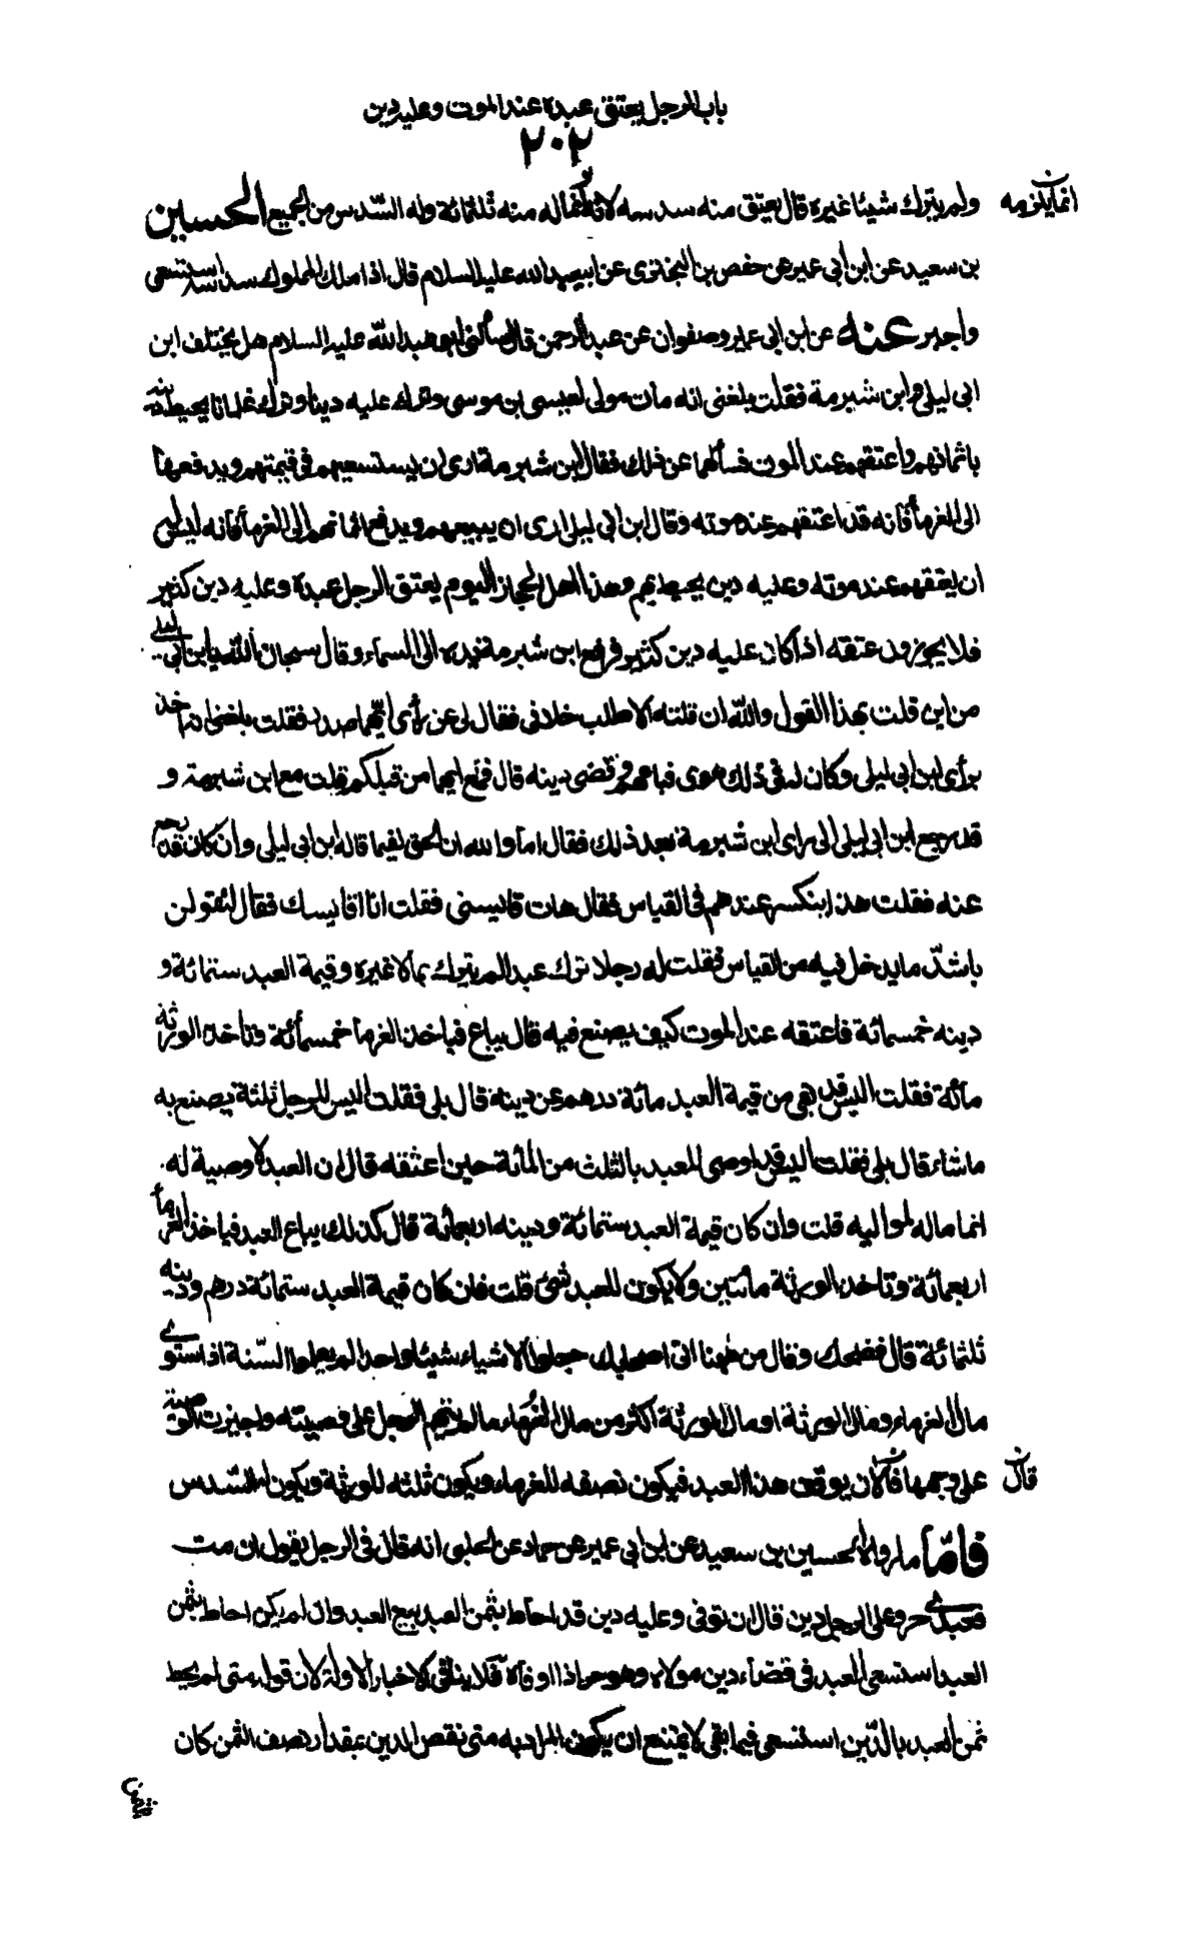 باب الرجل يعتق عبده عند الموت وعليه دين
٢٠٢
ولم يترك شيئا غيره قال يعتق منه سدسه لانه انما له منه ثلثمائة وله السّدس من الجميع الحسين
بن سعيد عن ابن أبي عمير عن حفص بن البختري عن ابيعبد الله عليه السلام قال اذا ملك المملوك سدسه استسعى
واجبر عنه عن ابن ابي عمير وصفوان عن عبد الرحمن قال سألني ابو عبد الله عليه السلام هل يختلف ابن
ابي ليلى وابن شبرمة فقلت بلغني انه مات مولى لعيسى بن موسى وترك عليه دينا وترك غلمانا يحيط دينه
باثمانهم واعتقهم عند الموت فسألهما عن ذلك فقال ابن شبرمة ارى ان يستسعيهم في قيمتهم ويدفعها
الى الغرمأ فانه قد اعتقهم عند موته وقال ابن ابي ليلى ارى ان يبيعهم ويدفع اثمانهم الى الغرمأ فانه ليس له
ان يعتقهم عند موته وعليه دين يحيط بهم وهذا اهل الحجاز اليوم يعتق الرجل عبده وعليه دين كثير
فلا يجوزون عتقه اذا كان عليه دين كثير فرفع ابن شبرمة يده الى السماء وقال سبحان الله يا ابن أبي ليلى
من اين قلت بهذا القول والله ان قلته الا طلب خلافي فقال لي عن رأى ايهما صدر فقلت بلغني انه اخذ
برأى ابن ابي ليلى وكان له في ذلك هوى فباعهم وقضى دينه قال فمع ايهما من قبلكم قلت مع ابن شبرمة و
قد رجع ابن ابي ليلى الى راى ابن شبرمة بعد ذلك فقال اما والله ان الحق لفيما قاله ابن ابي ليلى وان كان قد رجع
عنه فقلت هذا ينكسر عندهم في القياس فقال هات قايسني فقلت انا اقايسك فقال لتقولن
باشدّ ما يدخل فيه من القياس فقلت له رجلا ترك عبدا لم يترك مالا غيره وقيمة العبد ستمائة و
دينه خمسمائة فاعتقه عند الموت كيف يصنع فيه قال يباع فياخذ الغرمأ خمسمائة وتاخذ الورثة
مأئة فقلت اليس قد بقى من قيمة العبد مائة درهم عن دينه قال بلى فقلت اليس للرجل ثلثه يصنع به
ما شاء قال بلى فقلت اليس قد اوصى للعبد بالثلث من المائة حين اعتقه قال ان العبد لا وصية له
انما ماله لمواليه قلت وان كان قيمة العبد ستمائة ودينه اربعمائة قال كذلك يباع العبد فياخذ الغرمأ
اربعمائة وتاخذ الورثة مأتين ولا يكون للعبد شئ قلت فان كان قيمة العبد ستمائة درهم ودينه
ثلثمائة قال فضحك وقال من ههنا اتى اصحابك جعلوا الاشياء شيئا واحدا لم يعلموا السّنة اذا استوى
مال الغرماء ومال الورثة او مال الورثة اكثر من مال الغرماء ما لم يتهم الرجل على وصيته واجيزت الوصية
على وجهها فالان يوقف هذا العبد فيكون نصفه للغرماء ويكون ثلثه للورثة ويكون له السّدس
فامّا ما رواه الحسين بن سعيد عن ابن أبي عمير عن حماد عن الحلبي انه قال في الرجل يقول ان مت
فعبدي حر وعلى الرجل دين قال ان توفي وعليه دين قد احاط بثمن العبد بيع العبد وان لم يكن احاط بثمن
العبد استسعى العبد في قضآء دين مولاه وهو حر اذا اوفاه فلا ينافي الاخبار الاولة لان قوله متى لم يحط
ثمن العبد بالدّين استسعى فيما بقى لا يمتنع ان يكون المراد به متى نقص الدين بمقدار نصف الثمن كان